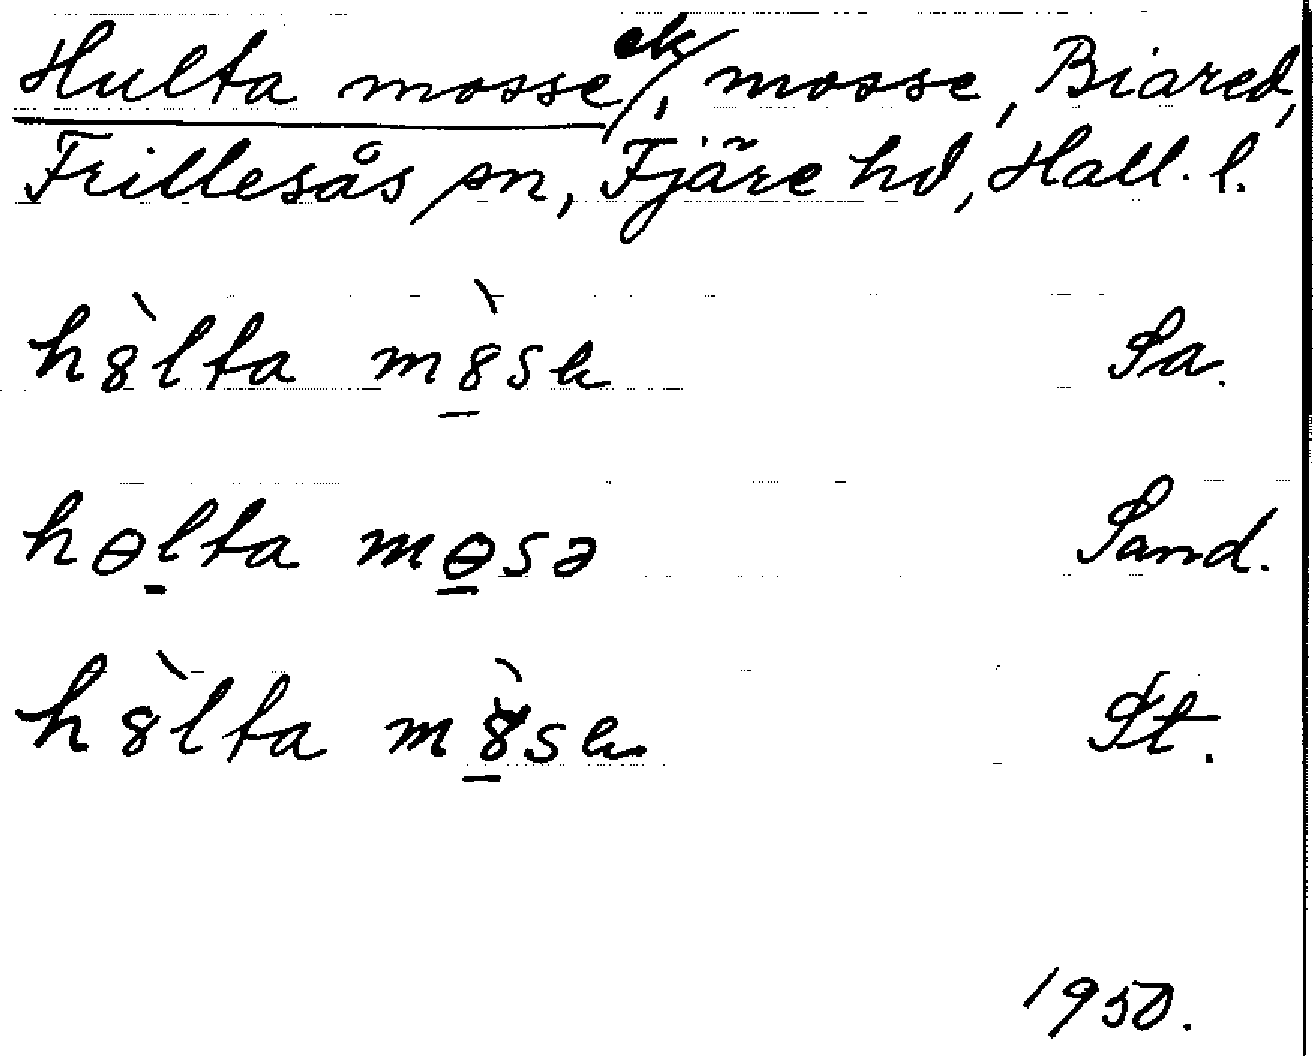 Hulta mosse ek/, mosse, Biared,
Frillesås sn, Fjäre hd, Hall. l.
h8̀lta m8̠̀se Sa.
hɵl̠ta mɵ̠sə Sand.
h8̀lta m8̠̀se St.
1950.